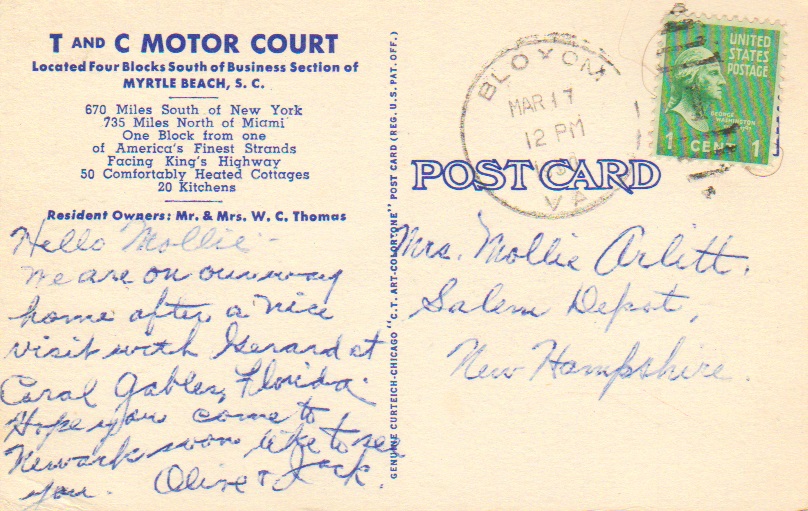 T AND C MOTOR COURT
Located Four Blocks South of Business Section of
MYRTLE BEACH, S. C.
670 Miles South of New York
735 Miles North of Miami
One Block from one
of America's Finest Strands
Facing King's Highway
50 Comfortably Heated Cottages
20 Kitchens
Resident Owners: Mr. & Mrs. W. C. Thomas
Hello Mollie -
We are on our way
home after a nice
visit with Gerard at
Coral Gables, Florida.
Hope you come to
Newark soon like to see
you. Olive & Jack.
GENUINE CURTEICH-CHICAGO "C.T. ART-COLORTONE" POST CARD (REG. U.S. PAT. OFF.)
BLOXOM
MAR 17
12 PM
VA
UNITED
STATES
POSTAGE
GEORGE
WASHINGTON
1 CENT 1
POST CARD
Mrs. Mollie Arlitt.
Salem Depot,
New Hampshire.